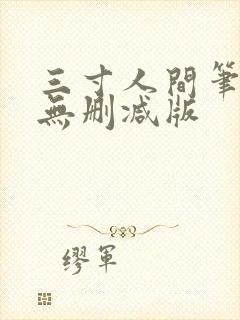 三寸人間筆
無刪減版
繆軍